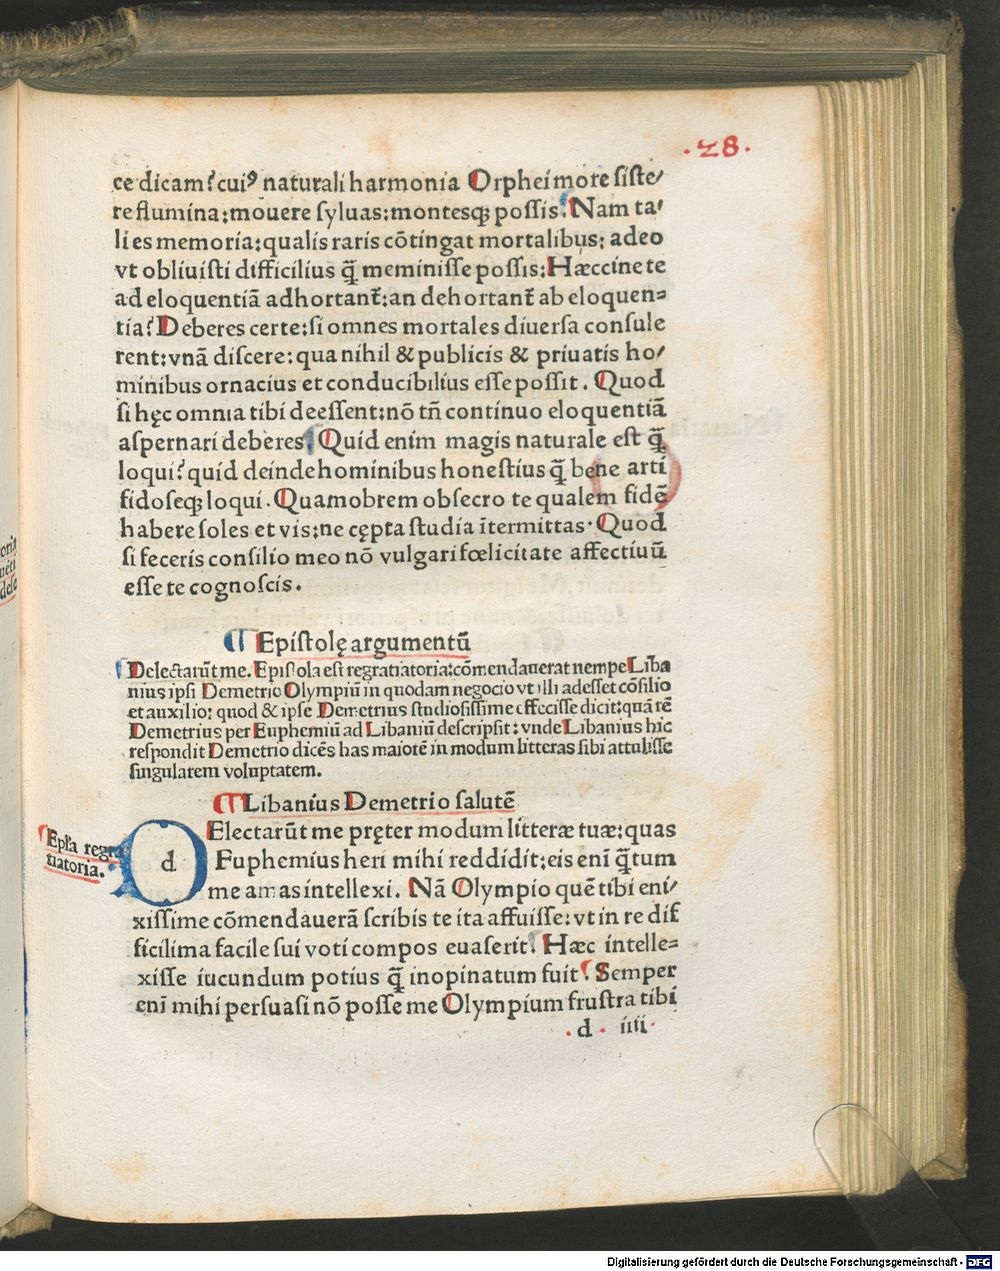 .28.
ce dicam? cuiꝰ naturali harmonia Orphei more siste/
re flumina: mouere syluas: montesqꝫ possis. Nam ta/
lies memoria: qualis raris cōtingat mortalibus: adeo
vt obliuisti difficilius q̄ meminisse possis: Hæccine te
ad eloquentiā adhortant̄: an dehortant̄ ab eloquen=
tia? Deberes certe: si omnes mortales diuersa consule
rent: vnā discere: qua nihil & publicis & priuatis ho/
minibus ornacius et conducibilius esse possit. Quod
si hęc omnia tibi deessent: nō tn̄ continuo eloquentiā
aspernari deberes. Quid enim magis naturale est q̄
loqui? quid deinde hominibus honestius q̄ bene arti
fidoseqꝫ loqui. Quamobrem obsecro te qualem fidē
habere soles et vis: ne cępta studia ītermittas. Quod
si feceris consilio meo nō vulgari fœlicitate affectiuū
esse te cognoscis.
¶ Epistolę argumentū
Delectarūt me. Epistola est regratiatoria: cōmendauerat nempe Liba
nius ipsi Demetrio Olympiū in quodam negocio vt illi adesset cōsilio
et auxilio: quod & ipse Demetrius studiosissime effecisse dicit: quā rē
Demetrius per Euphemiū ad Libaniū descripsit: vnde Libanius hic
respondit Demetrio dicēs has maiorē in modum litteras sibi attulisse
singularem voluptatem.
¶ Libanius Demetrio salutē
Epl'a regra
tiatoria.
d
Electarūt me pręter modum litteræ tuæ: quas
Euphemius heri mihi reddidit: eis enī q̄tum
me amas intellexi. Nā Olympio quē tibi eni/
xissime cōmendauerā scribis te ita affuisse: vt in re dif
ficilima facile sui voti compos euaserit. Hæc intelle=
xisse iucundum potius q̄ inopinatum fuit. Semper
enī mihi persuasi nō posse me Olympium frustra tibi
.d. iiii.
oria
dele
Digitalisierung gefördert durch die Deutsche Forschungsgemeinschaft - DFG